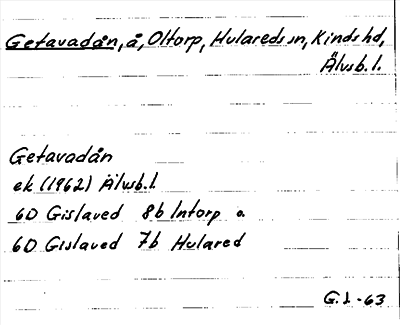 Getavadån, å, Oltorp, Hulareds sn, Kinds hd,
Älvsb. l.
Getavadån
ek (1962) Älvsb. l.
6D Gislaved 8b Intorp o.
6D Gislaved 7b Hulared
G. J. -63